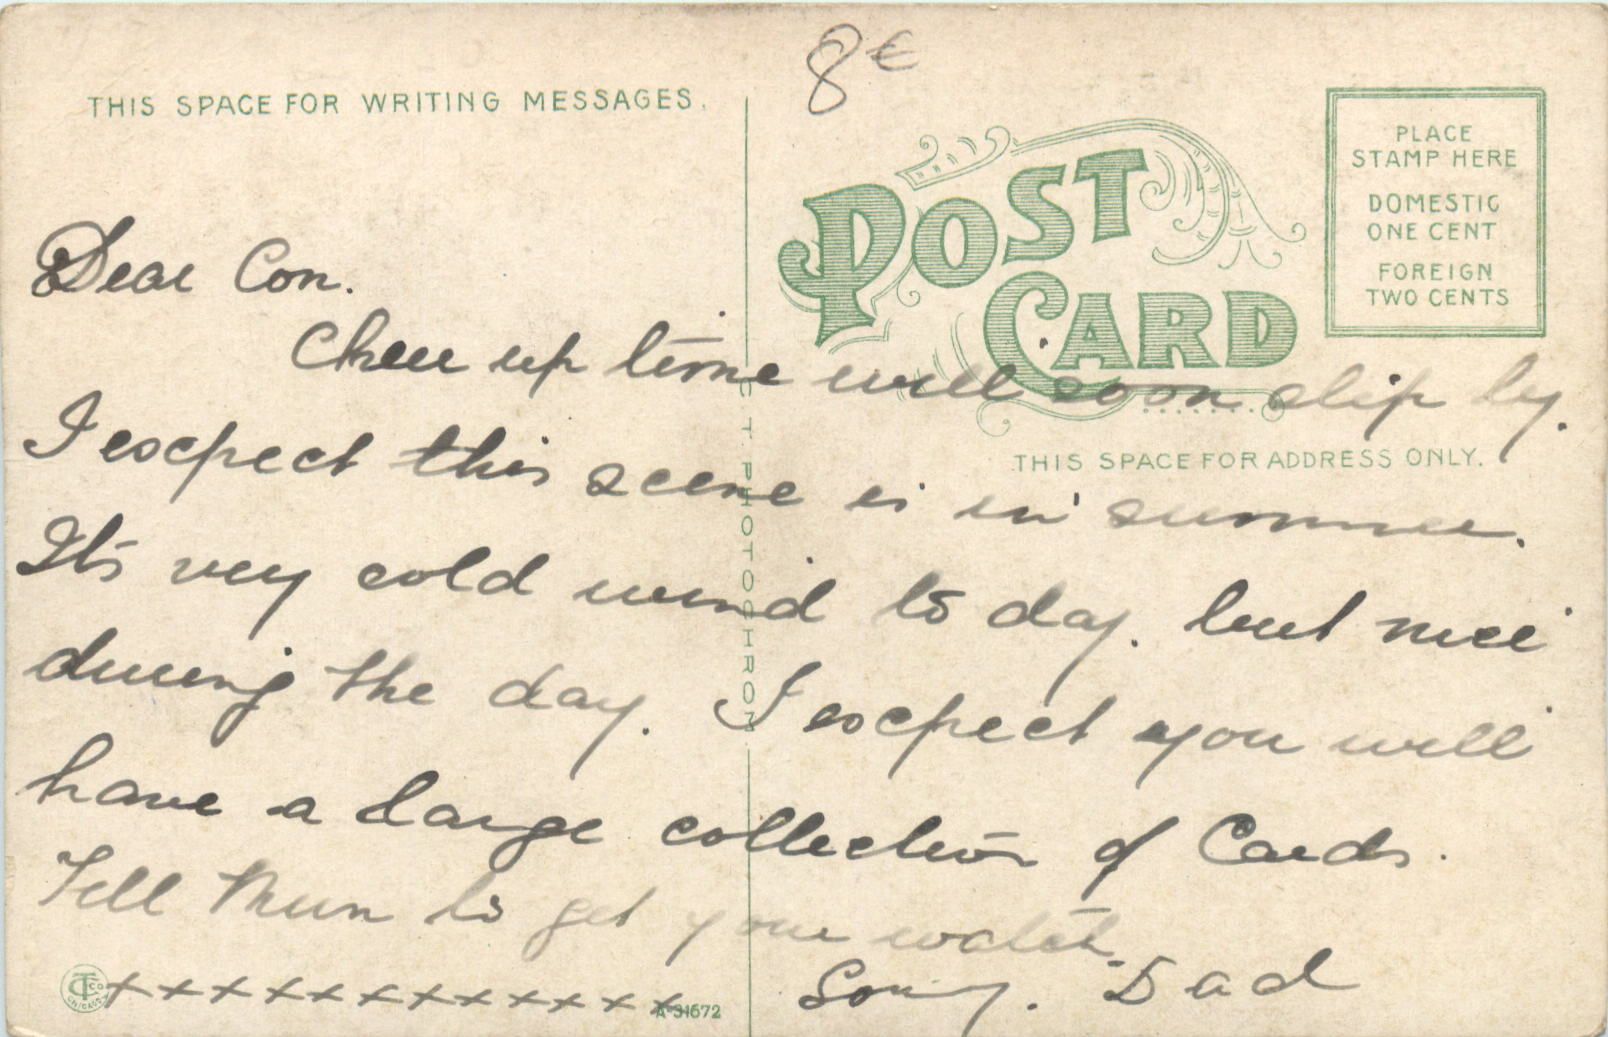 8€
THIS SPACE FOR WRITING MESSAGES.
POST
CARD
PLACE
STAMP HERE
DOMESTIC
ONE CENT
FOREIGN
TWO CENTS
THIS SPACE FOR ADDRESS ONLY.
C. T. PHOTOCHROM
Dear Con.
Cheer up time will soon slip by.
I expect this scene is in summer.
Its very cold wind to day. but nice
during the day. I expect you will
have a large collection of Cards.
Tell Mum to get your watch.
Dad
xxxxxxxxxxxxx
CT CO
CHICAGO
A-31672